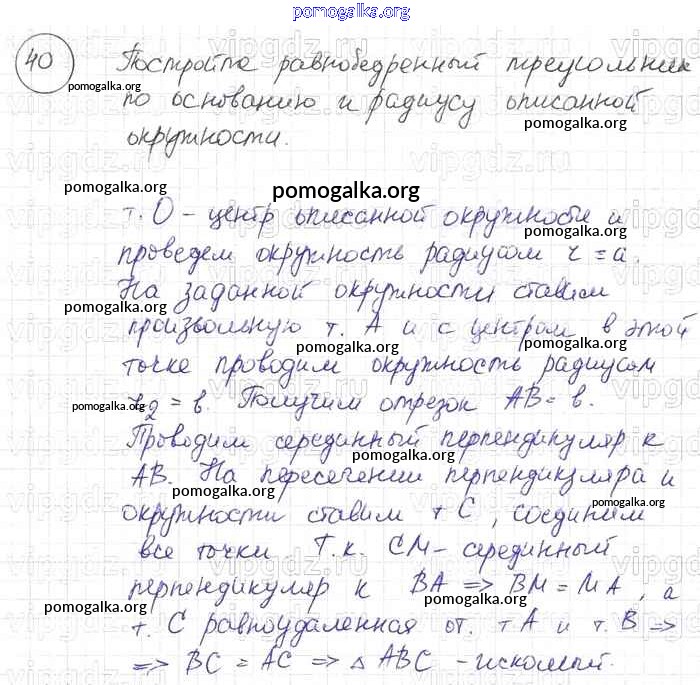 pomogalka.org
40 Постройте равнобедренный треугольник
pomogalka.org
по основанию и радиусу описанной
pomogalka.org
окружности.
pomogalka.org pomogalka.org
т. О - центр описанной окружности и
pomogalka.org
проведем окружность радиусом r = a.
На заданной окружности ставим
pomogalka.org
произвольную т. А и с центром в этой
pomogalka.org pomogalka.org
точке проводим окружность радиусом
r2 = b. Получим отрезок AB = b.
pomogalka.org pomogalka.org
Проводим серединный перпендикуляр к
AB. На пересечении перпендикуляра и
pomogalka.org pomogalka.org
окружности ставим т С, соединим
все точки. Т.к. CM - серединный
перпендикуляр к BA => BM = MA, а
pomogalka.org pomogalka.org
т. С равноудаленная от. т А и т. В =>
=> BC = AC => △ ABC - искомый.
pomogalka.org